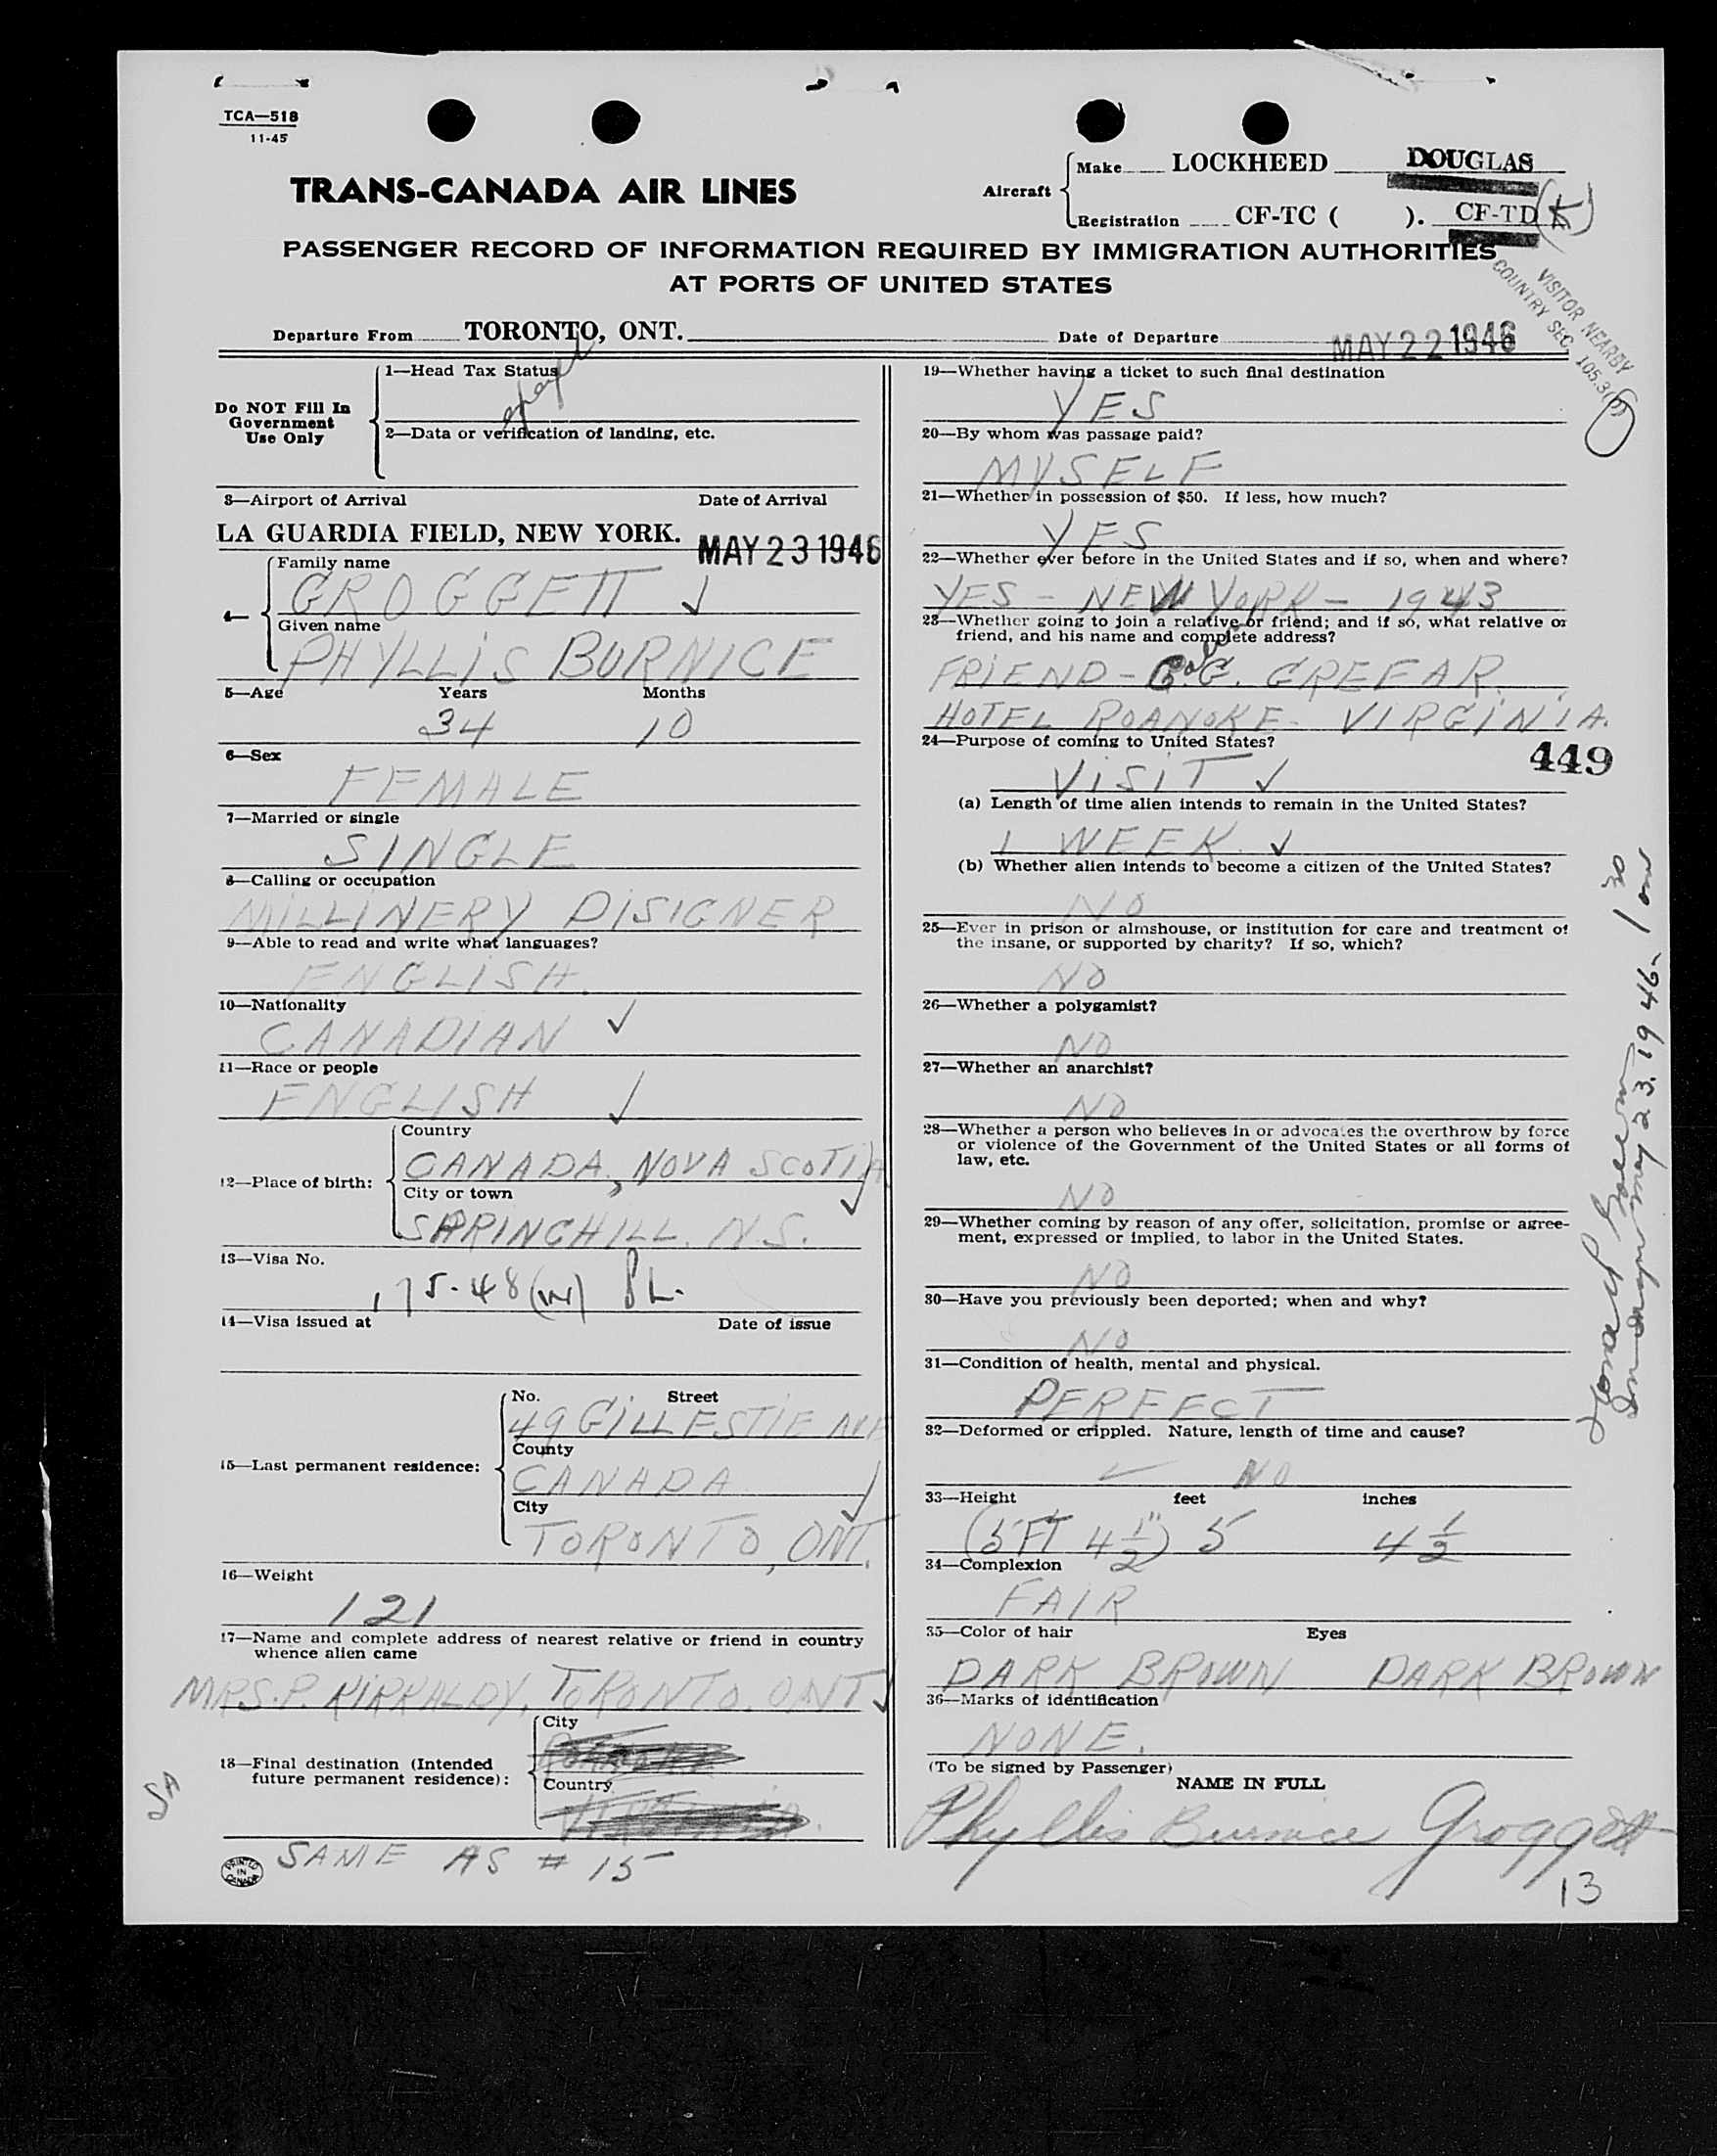 TCA—518
11-45
TRANS-CANADA AIR LINES
Aircraft
Make LOCKHEED DOUGLAS
Registration CF-TC ( ). CF-TD (K)
PASSENGER RECORD OF INFORMATION REQUIRED BY IMMIGRATION AUTHORITIES
AT PORTS OF UNITED STATES
VISITOR NEARBY
COUNTRY SEC. 105.3
Departure From TORONTO, ONT. Date of Departure MAY 22 1946
Do NOT Fill In
Government
Use Only
1—Head Tax Status
2—Data or verification of landing, etc.
3—Airport of Arrival Date of Arrival
LA GUARDIA FIELD, NEW YORK. MAY 23 1946
4—
Family name
GROGGETT ✓
Given name
PHYLLIS BURNICE
5—Age Years Months
34 10
6—Sex
FEMALE
7—Married or single
SINGLE
8—Calling or occupation
MILLINERY DISIGNER
9—Able to read and write what languages?
ENGLISH.
10—Nationality
CANADIAN ✓
11—Race or people
ENGLISH ✓
12—Place of birth:
Country
CANADA, NOVA SCOTIA
City or town
SPRINGHILL. N.S. ✓
13—Visa No.
175-48
14—Visa issued at Date of issue
15—Last permanent residence:
No. Street
49 GILLESTIE AVE
County
CANADA ✓
City
TORONTO, ONT.
16—Weight
121
17—Name and complete address of nearest relative or friend in country
whence alien came
MRS. P. KIRKALDY, TORONTO. ONT ✓
18—Final destination (Intended
future permanent residence):
City
Country
SAME AS # 15
PRINTED
IN
CANADA
19—Whether having a ticket to such final destination
YES
20—By whom was passage paid?
MYSELF
21—Whether in possession of $50. If less, how much?
YES
22—Whether ever before in the United States and if so, when and where?
YES - NEW YORK - 1943
23—Whether going to join a relative or friend; and if so, what relative or
friend, and his name and complete address?
FRIEND - G. GREFAR.
HOTEL ROANOKE - VIRGINIA.
24—Purpose of coming to United States?
449
VISIT ✓
(a) Length of time alien intends to remain in the United States?
1 WEEK. ✓
(b) Whether alien intends to become a citizen of the United States?
NO
25—Ever in prison or almshouse, or institution for care and treatment of
the insane, or supported by charity? If so, which?
NO
26—Whether a polygamist?
NO
27—Whether an anarchist?
NO
28—Whether a person who believes in or advocates the overthrow by force
or violence of the Government of the United States or all forms of
law, etc.
NO
29—Whether coming by reason of any offer, solicitation, promise or agree-
ment, expressed or implied, to labor in the United States.
NO
30—Have you previously been deported; when and why?
NO
31—Condition of health, mental and physical.
PERFECT
32—Deformed or crippled. Nature, length of time and cause?
✓ NO
33—Height feet inches
(5 FT 4 1/2") 5 4 1/2
34—Complexion
FAIR
35—Color of hair Eyes
DARK BROWN DARK BROWN
36—Marks of identification
NONE.
(To be signed by Passenger)
NAME IN FULL
Phyllis Burnice Groggett
13
May 23. 1946